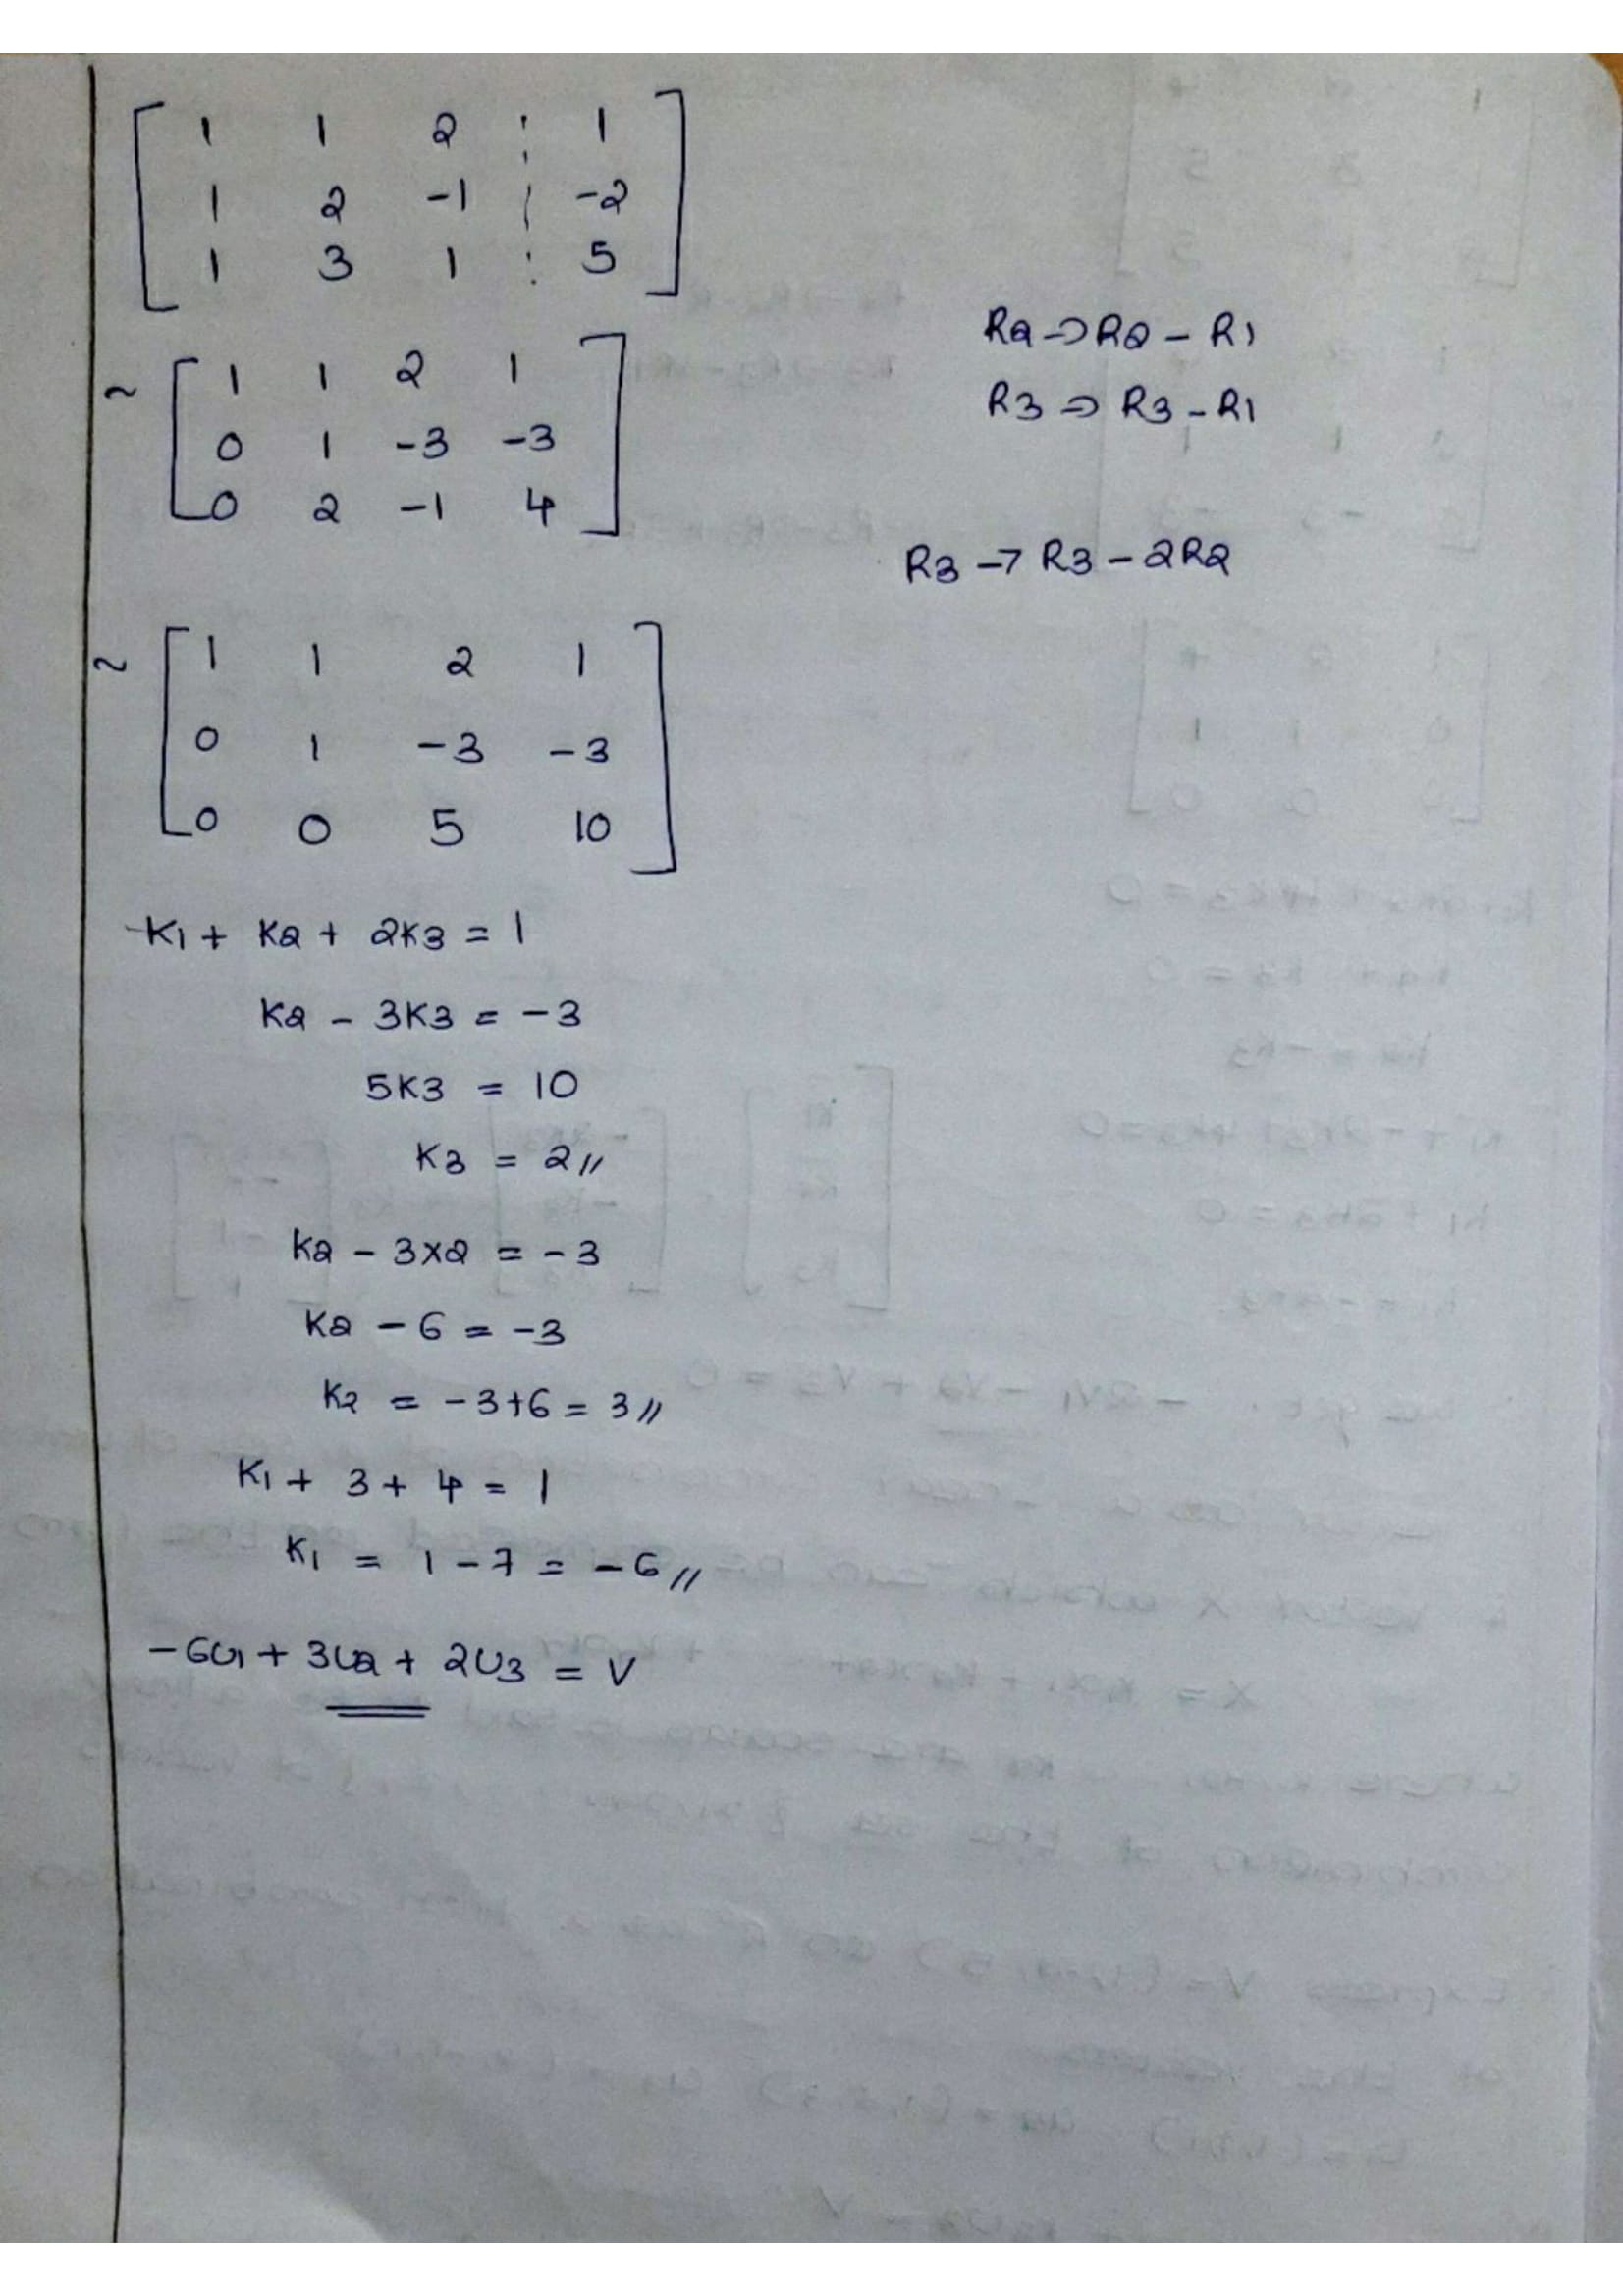 1 1 2 : 1
1 2 -1 : -2
1 3 1 : 5
R2 → R2 - R1
~ 1 1 2 1
R3 → R3 - R1
0 1 -3 -3
0 2 -1 4
R3 → R3 - 2R2
~ 1 1 2 1
0 1 -3 -3
0 0 5 10
K1 + K2 + 2K3 = 1
K2 - 3K3 = -3
5K3 = 10
K3 = 2//
K2 - 3×2 = -3
K2 - 6 = -3
K2 = -3+6 = 3//
K1 + 3 + 4 = 1
K1 = 1 - 7 = -6//
-6U1 + 3U2 + 2U3 = V